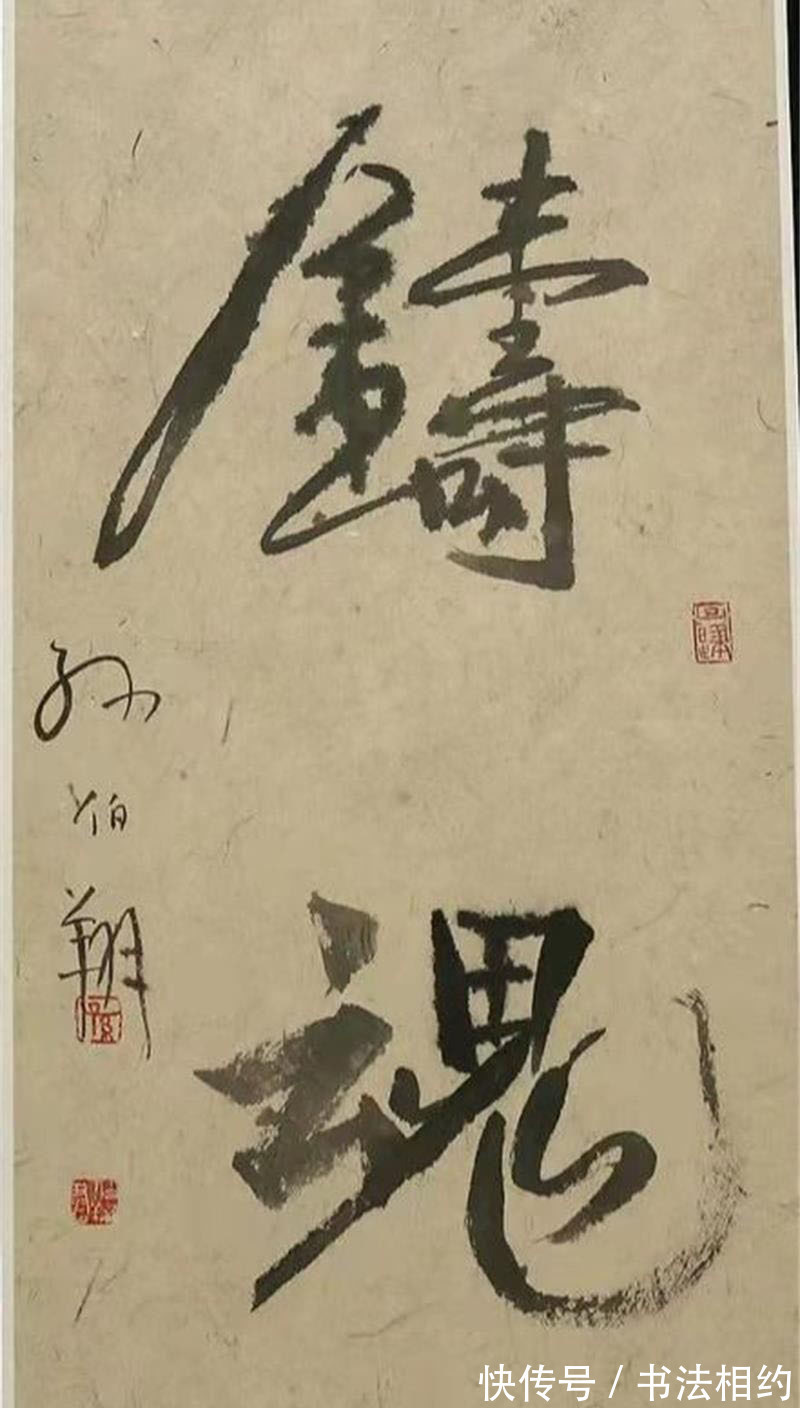 鑄
魂
孙伯翔
快传号 / 书法相约